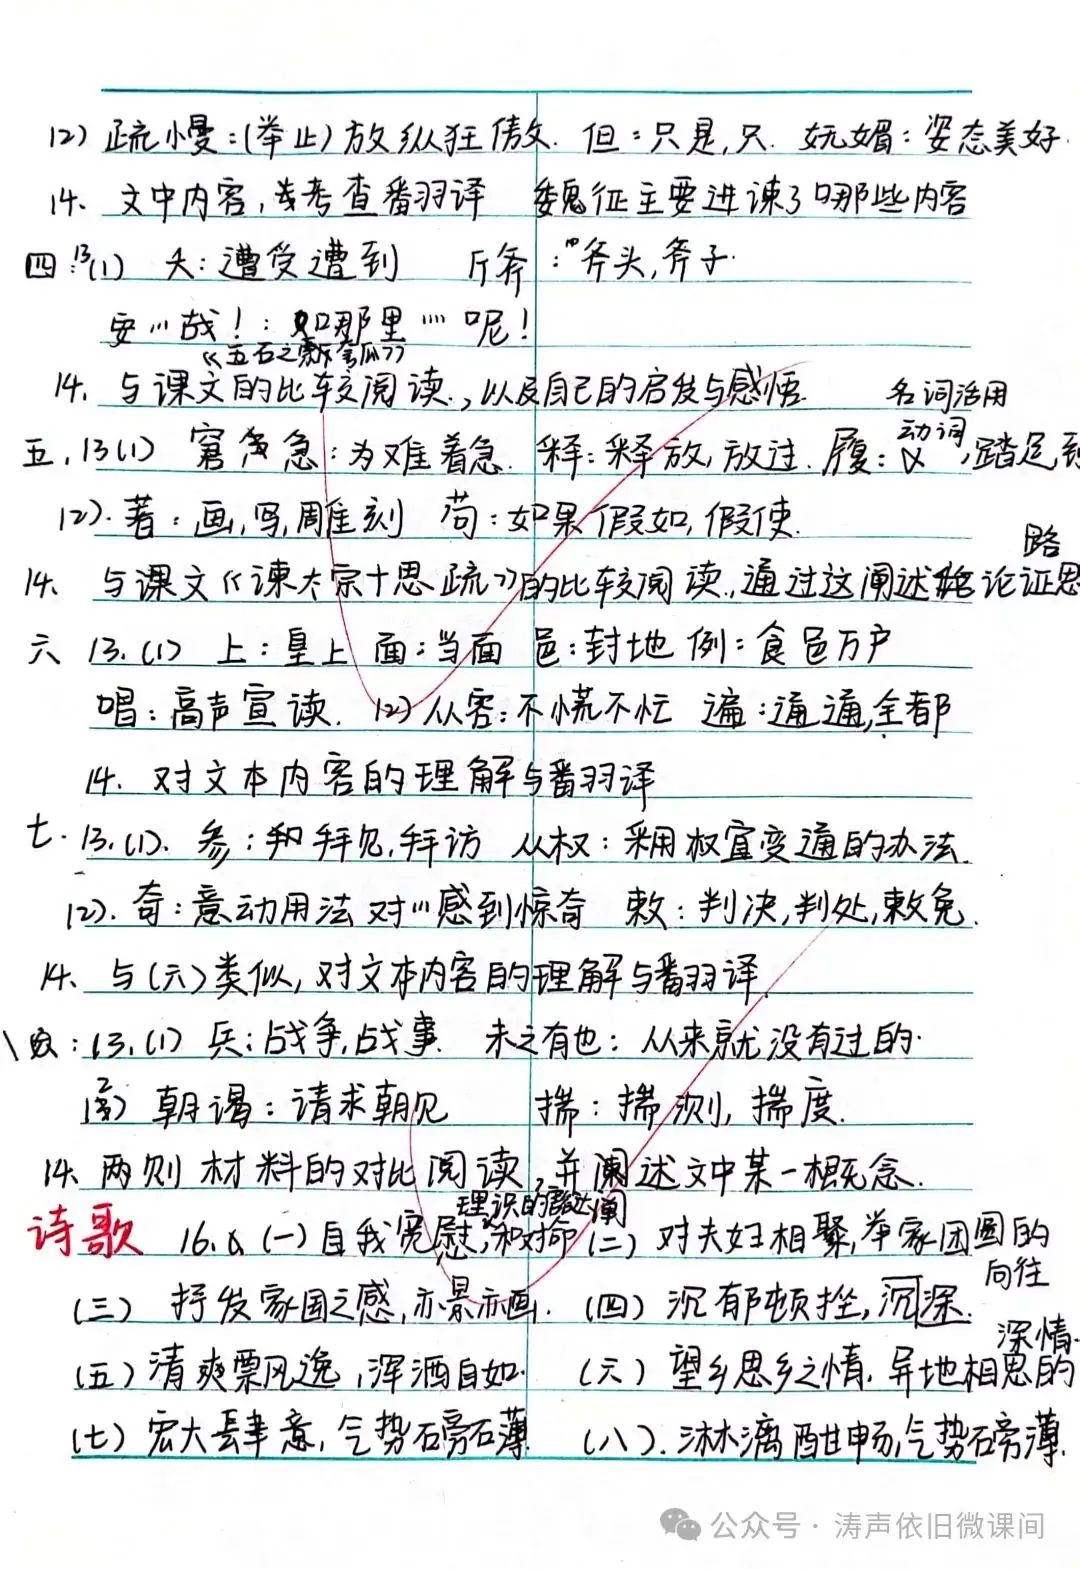 (2) 疏慢:(举止)放纵狂傲. 但:只是,只. 妩媚:姿态美好.
14. 文中内容,考查翻译 魏征主要进谏了哪些内容
四:13(1) 夭:遭受遭到 斤斧:斧头,斧子.
安……哉!:如哪里……呢!
《五石之瓠》
14. 与课文的比较阅读,以及自己的启发与感悟.
名词活用
动词
五.13(1) 窘急:为难着急. 释:释放,放过. 履: ,踏足到
(2).著:画,写,雕刻 苟:如果假如,假使.
路
14. 与课文《谏太宗十思疏》的比较阅读,通过这阐述论证思
六 13.(1) 上:皇上 面:当面 邑:封地 例:食邑万户
唱:高声宣读. (2)从容:不慌不忙 遍:遍遍,全都
14. 对文本内容的理解与翻译
七.13.(1). 参:拜见,拜访 从权:采用权宜变通的办法.
(2).奇:意动用法 对…感到惊奇 赦:判决,判处,赦免.
14. 与(六)类似,对文本内容的理解与翻译.
八:13.(1) 兵:战争,战事. 未之有也:从来就没有过的.
(2) 朝谒:请求朝见 揣:揣测,揣度.
14. 两则材料的对比阅读,并阐述文中某一概念.
诗歌 16. (一)自我宽慰,和对命 (二) 对夫妇相聚,举家团圆的
向往
(三) 抒发家国之感,亦景亦画. (四) 沉郁顿挫,沉深.
深情.
(五)清爽飘逸,浑洒自如. (六) 望乡思乡之情,异地相思的
(七)宏大肆意,气势磅礴. (八).淋漓酣畅,气势磅薄.
公众号·涛声依旧微课间